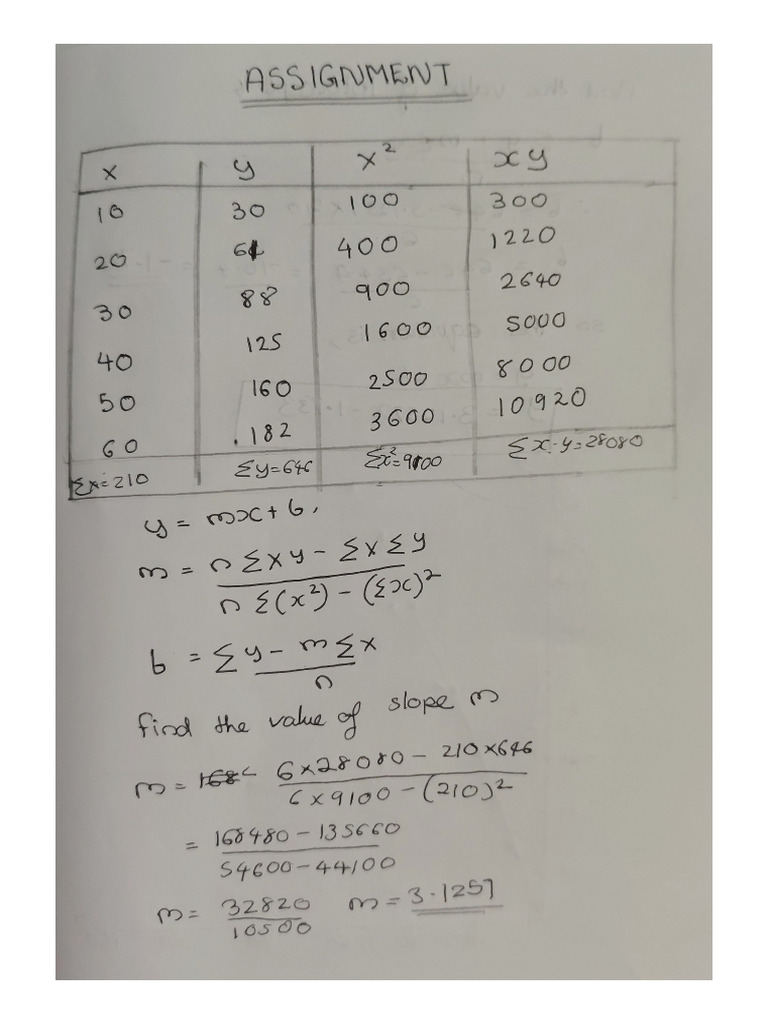 ASSIGNMENT
x y x² xy
10 30 100 300
20 61 400 1220
30 88 900 2640
40 125 1600 5000
50 160 2500 8000
60 .182 3600 10920
Σx=210 Σy=646 Σx²=9100 Σx·y=28080
y = mx + b,
m = nΣxy - ΣxΣy
n Σ(x²) - (Σx)²
b = Σy - mΣx
n
find the value of slope m
m = 6×28080 - 210×646
6×9100 - (210)²
= 168480 - 135660
54600 - 44100
m = 32820 m = 3.1257
10500